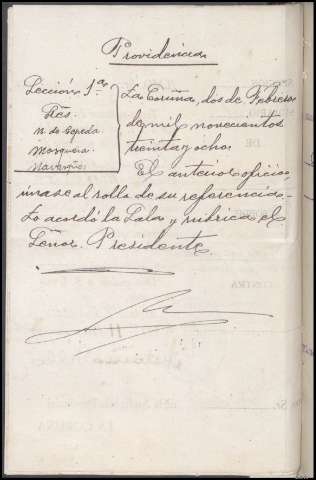 Providencia
Sección 1ª
Sres.
N. de Cepeda
Mosquera
Navarro
La Coruña, dos de Febrero
de mil novecientos
treinta y ocho
El anterior oficio
únase al rollo de su referencia.
Lo acordó la Sala y rubrica el
Señor Presidente.